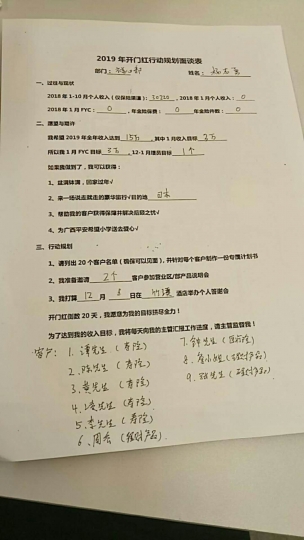 2019 年开门红行动规划面谈表
部门： 姓名：
一、过往与现状
2018 年 1-10 月个人收入（仅保险渠道）：30220，2018 年 1 月个人收入：0
2018 年 1 月 FYC：0，年金险保费：0 年金险件数：0
二、愿望与期许
我希望 2019 年全年收入达到 15万，其中 1 月收入目标 2万
所以我 1 月 FYC 目标 5万 12-1 月增员目标 1个
如果我做到了，我可以获得：
1、盆满钵满，回家过年√
2、来一场说走就走的豪华旅行√目的地 日本
3、帮助我的客户获得保障并解决后顾之忧√
4、为广西平安希望小学送去爱心√
三、行动规划
1、请列出 20 个客户名单（确保可以见面），并针对每个客户制作一份专属计划书
2、我准备邀请 2个 客户参加营业区/部产品说明会
3、我打算 12 月 8 日在 酒店举办个人答谢会
开门红面数 20 天，我愿意为我的目标拼尽全力！
为了达到我的收入目标，我将每天向我的主管汇报工作进度，请主管监督我！
客户： 1. 潭先生（寿险）
2. 陈先生（寿险）
3. 黄先生（寿险）
4. 凌先生（寿险）
5. 李先生（寿险）
6. 周 （理财产品）
7. 钟先生（ 险）
8. 小姐（理财产品）
9. 先生（理财产品）